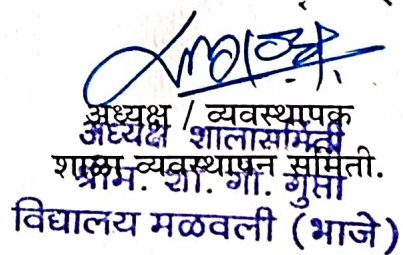 अध्यक्ष / व्यवस्थापक
अध्यक्ष शालासमिती
शाळा व्यवस्थापन समिती.
प्राम. शां. गो. गुप्ता
विद्यालय मळवली (भाजे)